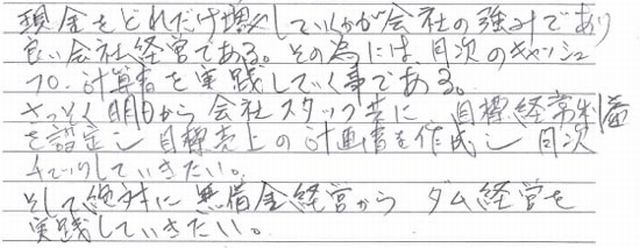 現金をどれだけ増やしていくかが会社の強みであり
良い会社経営である。その為には月次のキャッシュ
フロー計算書を実践していく事である。
さっそく明日から会社スタッフ共に 目標経常利益
を設定し目標売上の計画書を作成し月次
チェックしていきたい。
そして絶対に無借金経営から ダム経営を
実践していきたい。